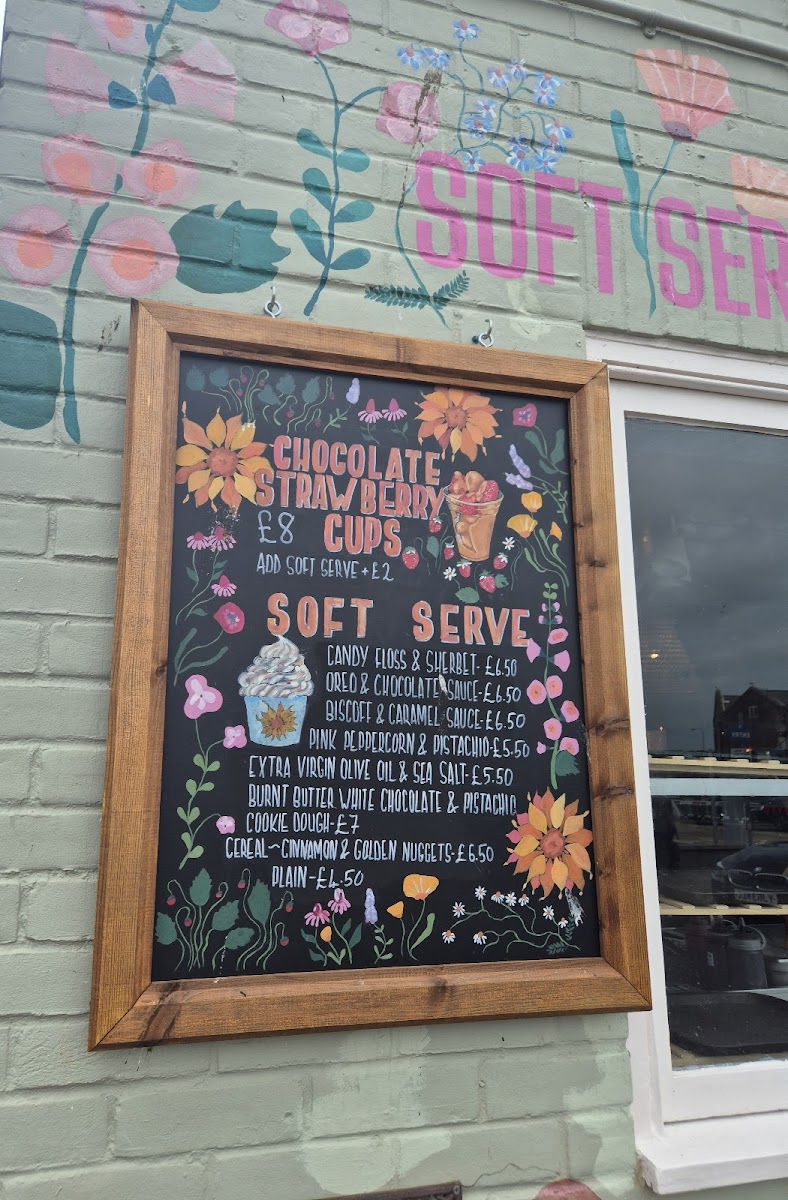 SOFT SER
CHOCOLATE
STRAWBERRY
£8 CUPS
ADD SOFT SERVE + £2
SOFT SERVE
CANDY FLOSS & SHERBET- £6.50
OREO & CHOCOLATE SAUCE-£6.50
BISCOFF & CARAMEL SAUCE-£6.50
PINK PEPPERCORN & PISTACHIO-£5.50
EXTRA VIRGIN OLIVE OIL & SEA SALT-£5.50
BURNT BUTTER WHITE CHOCOLATE & PISTACHIO
COOKIE DOUGH-£7
CEREAL~CINNAMON & GOLDEN NUGGETS-£6.50
PLAIN-£4.50